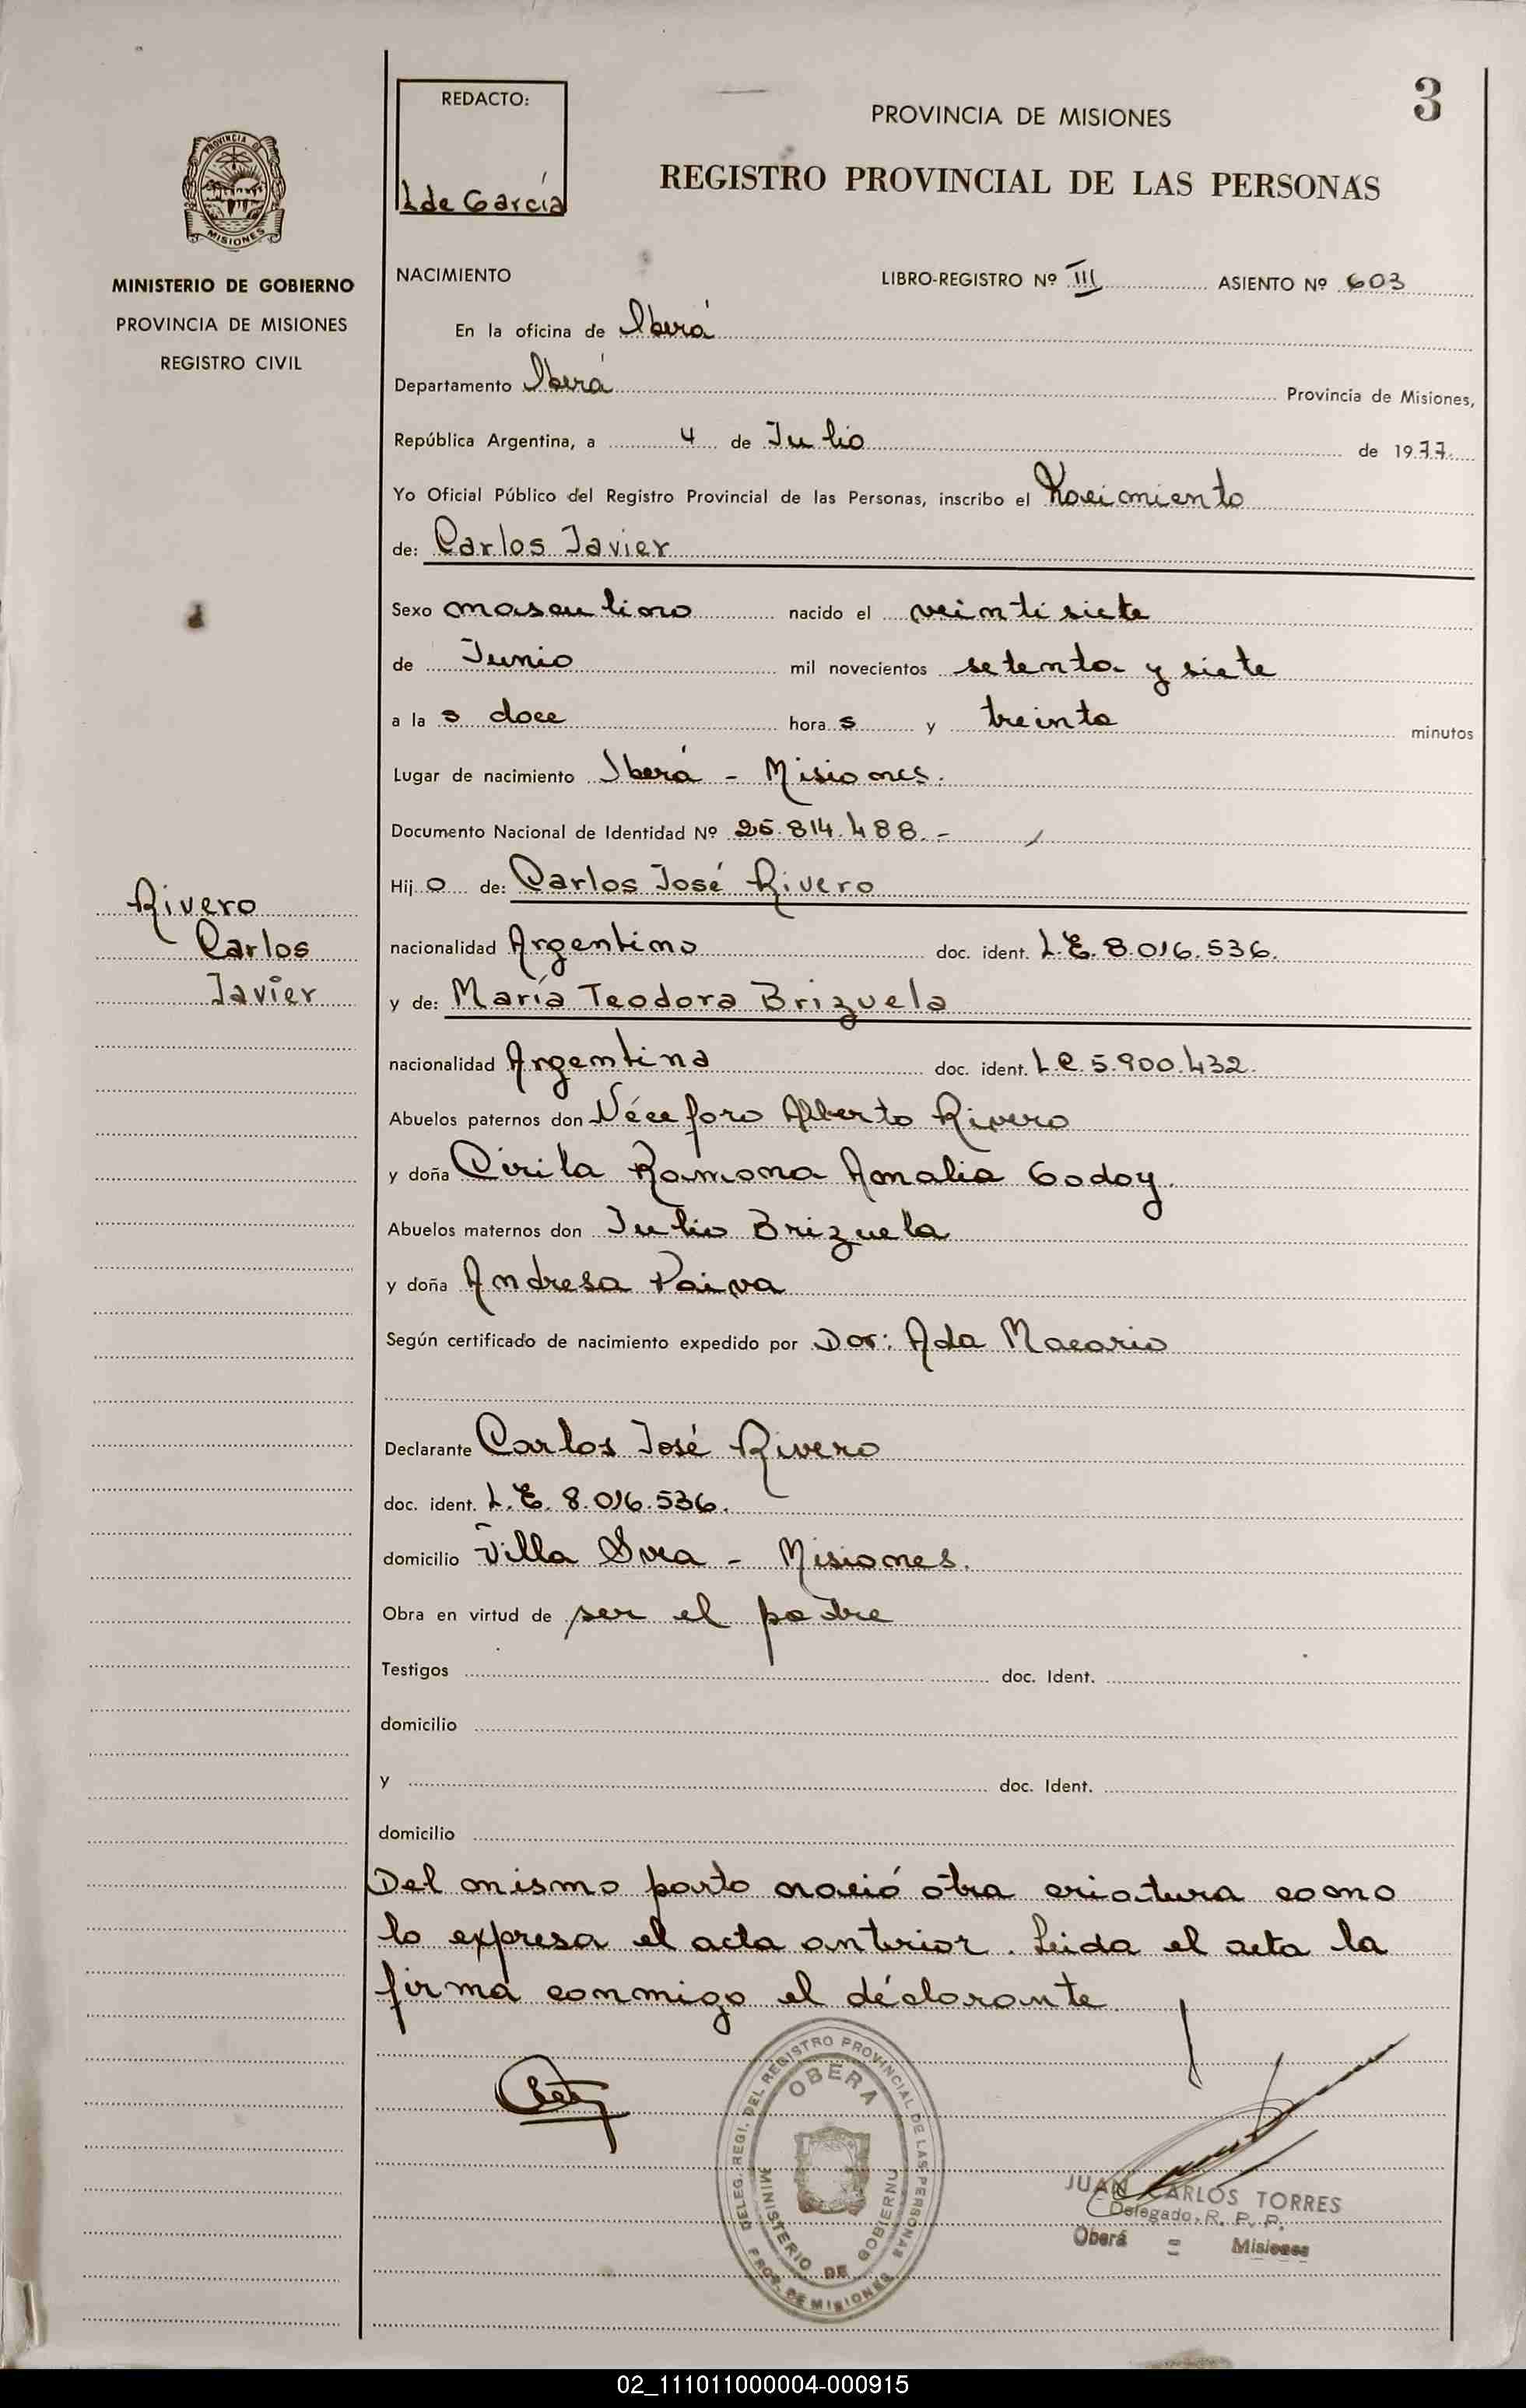 3
REDACTO:
L de García
PROVINCIA DE MISIONES
REGISTRO PROVINCIAL DE LAS PERSONAS
PROVINCIA DE
MISIONES
MINISTERIO DE GOBIERNO
PROVINCIA DE MISIONES
REGISTRO CIVIL
NACIMIENTO LIBRO-REGISTRO Nº III ASIENTO Nº 603
En la oficina de Oberá
Departamento Oberá Provincia de Misiones,
República Argentina, a 4 de Julio de 1977
Yo Oficial Público del Registro Provincial de las Personas, inscribo el Nacimiento
de: Carlos Javier
Sexo masculino nacido el veintisiete
de Junio mil novecientos setenta y siete
a la s doce hora s y treinta minutos
Lugar de nacimiento Oberá - Misiones.
Documento Nacional de Identidad Nº 25.814.488.-
Hij o de: Carlos José Rivero
Rivero
Carlos
Javier
nacionalidad Argentino doc. ident. L.E. 8.016.536.
y de: María Teodora Brizuela
nacionalidad Argentina doc. ident. L.C. 5.900.432.
Abuelos paternos don Néceforo Alberto Rivero
y doña Cirila Ramona Amalia Godoy.
Abuelos maternos don Julio Brizuela
y doña Andresa Paiva
Según certificado de nacimiento expedido por Dor: Ada Macario
Declarante Carlos José Rivero
doc. ident. L.E. 8.016.536.
domicilio Villa Svea - Misiones.
Obra en virtud de ser el padre
Testigos doc. Ident.
domicilio
y doc. Ident.
domicilio
Del mismo parto nació otra criatura como
lo expresa el acta anterior. Leida el acta la
firma conmigo el déclarante
DELEG. REGI. DEL REGISTRO PROVINCIAL DE LAS PERSONAS
OBERA
MINISTERIO DE GOBIERNO
PROV. DE MISIONES
JUAN CARLOS TORRES
Delegado. R. P. P.
Oberá - Misiones
02_111011000004-000915